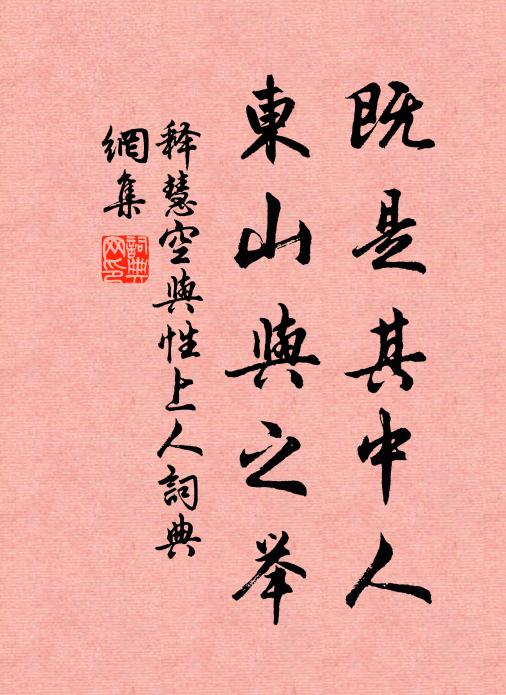 既是其中人
東山與之举
释慧空與性上人詞典
網集
詞典網印